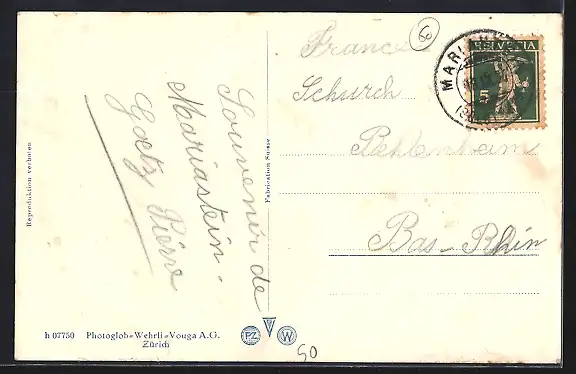 60
MARIA
HELVETIA
5
France
Schurch
Pehlenheim
Bas-Rhin
Souvenir de
Mariastein.
Goetz Pierre
Reproduktion verboten
Fabrication Suisse
h 07750 Photoglob-Wehrli-Vouga A.G.
Zürich
PZ V W
50